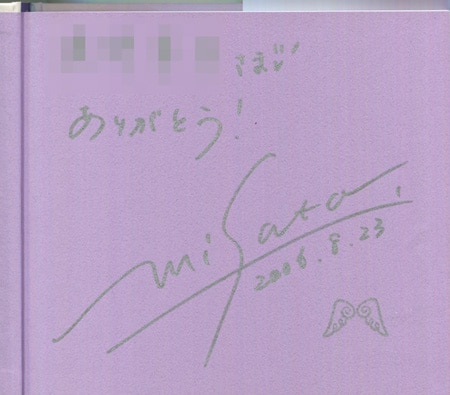 さまぃ
ありがとう!
misato.
2006.8.23